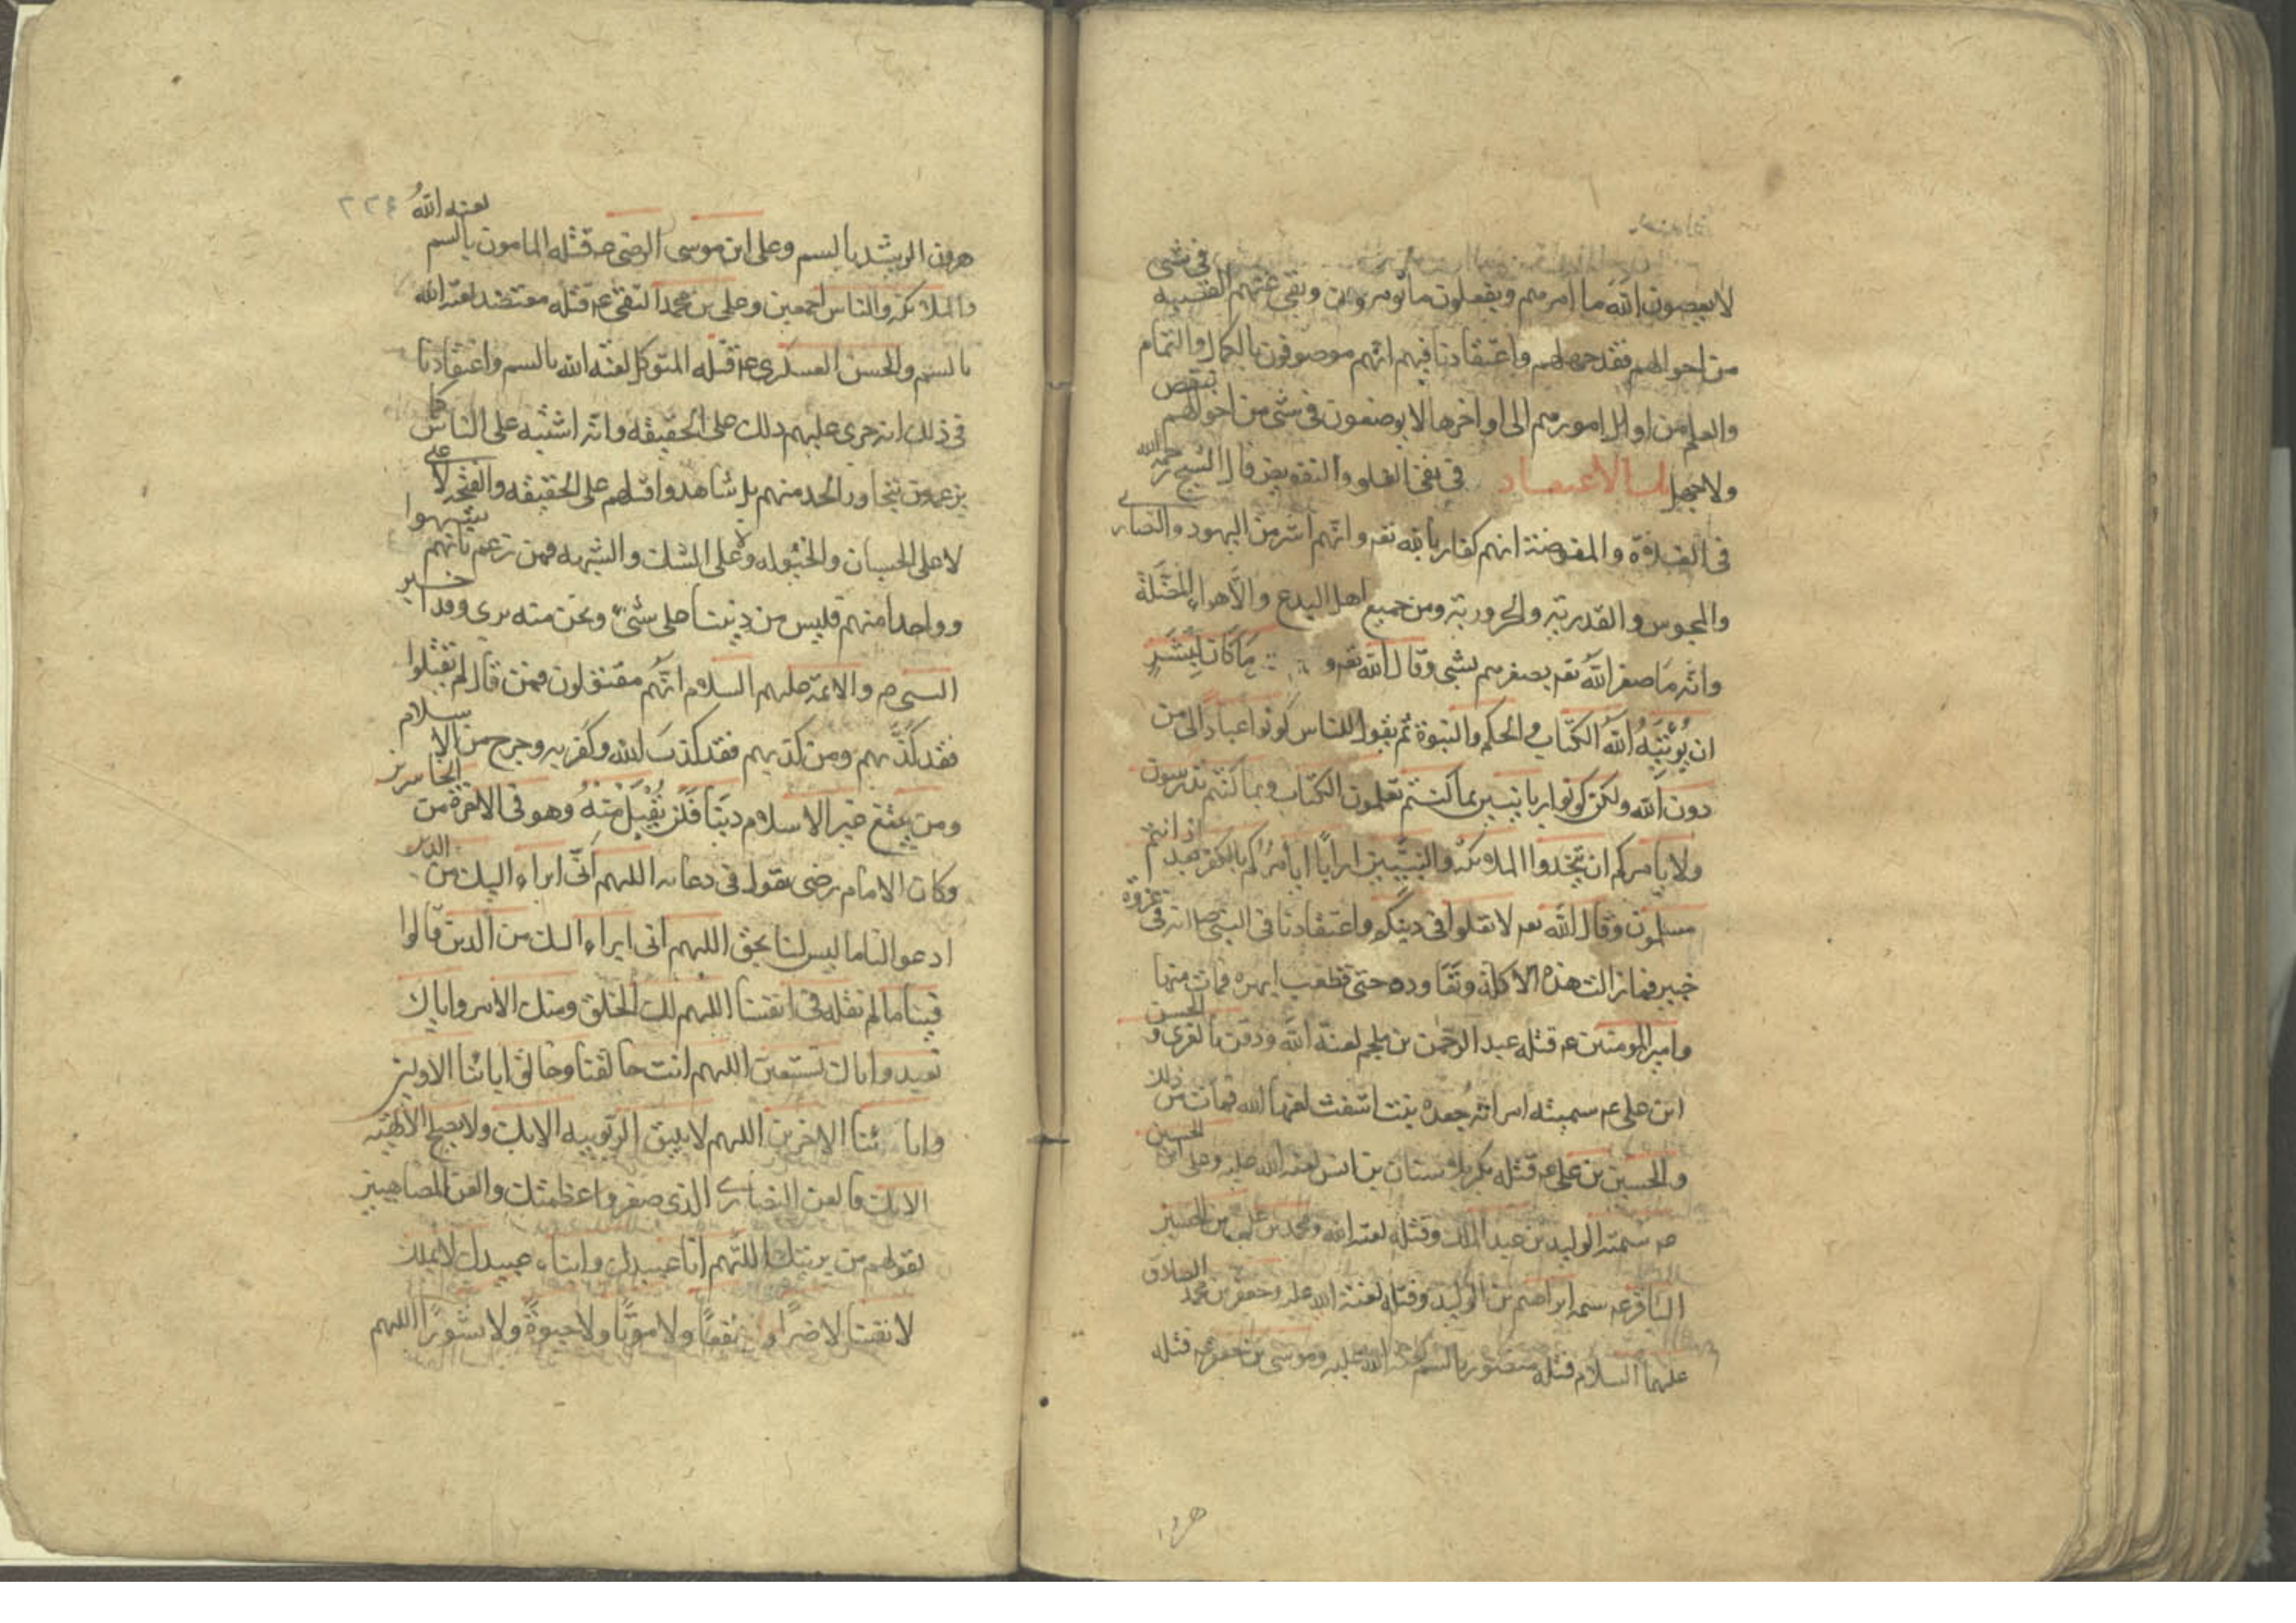 لا يعصون الله ما امرهم ويفعلون ما يؤمرون ونفى عنهم العصمه في شي
من احوالهم فقد جهلهم واعتقادنا فيهم انهم موصوفون بالكمال والتمام
والعلم من اوايل امورهم الى اواخرها لا يوصفون في شي من احوالهم بنقص
ولا جهل باب الاعتقاد في نفى الغلو والتفويض قال الشيخ رحمه الله
في الغلاة والمفوضة انهم كفار بالله تعه وانهم اشر من اليهود والنصارى
والمجوس والقدرية والحرورية ومن جميع اهل البدع والاهواء المضلة
وانه ما صغر الله تعه بصغرهم بشي وقال الله تعه و مَا كَانَ لِبَشَرٍ
ان يُؤْتِيَهُ الله الكتاب والحكم والنبوة ثم يقول للناس كونوا عبادًا لي من
دون الله ولكن كونوا ربانيين بما كنتم تعلمون الكتاب وبما كنتم تدرسون
ولا يامركم ان تتخذوا الملائكة والنبيين اربابًا ايامركم بالكفر بعد اذ انتم
مسلمون وقال الله تعه لا تغلوا في دينكم واعتقادنا في النبي ص انه في غزوة
خيبر فما زالت هذه الاكلة وتعاوده حتى قطعت ابهره فمات منها
وامير المومنين ع قتله عبد الرحمن بن ملجم لعنه الله ودفن بالغرى و الحسن
ابن على ع سميته امراته جعده بنت اشعث لعنها الله فمات من ذلك
والحسين بن على ع قتله بكربلا سنان بن انس لعنه الله عليه وعلى ابن الحسين
ع سمته الوليد بن عبد الملك وقتله لعنه الله ومحمد بن على بن الحسين
الباقر ع سمه ابراهيم بن الوليد وقتله لعنة الله عليه وجعفر بن محمد الصادق
عليهما السلام قتله منصور بالسم لعنة الله عليه وموسى بن جعفر ع قتله
هرون
٢٢٤
هرون الرشيد بالسم وعلى ابن موسى الرضى ع قتله المامون بالسم لعنه اللهُ
والملائكة والناس اجمعين وعلى بن محمد التقى ع قتله معتضد لعنه الله
بالسم والحسن العسكرى ع قتله المتوكل لعنه الله بالسم واعتقادنا
في ذلك انه جرى عليهم ذلك على الحقيقه وانه اشتبه على الناس كما
يزعمون يتجاوز الحد منهم بل شاهدوا قتلهم على الحقيقه والصحه لا على
لا على الحسبان والخيوله ولا على الشك والشبهه فمن زعم بانهم شبهوا
وواحدا منهم فليس من ديننا على شئ ونحن منه برى وقد اخبر
النبى ص والائمة عليهم السلام انهم مقتولون فمن قال لم يقتلوا
فقد كذبهم ومن كذبهم فقد كذبَ الله وكفر به وخرج من الاسلام
ومن يبتغ غير الاسلام دينًا فَلَنْ يُقْبَلَ مِنْهُ وهو في الاخرة من الخاسرين
وكان الامام رضى يقول في دعائه اللهم انّى ابراء اليك من الذين
ادعو النا ما ليس لنا بحق اللهم انى ابراء اليك من الذين قالوا
فينا ما لم نقله في انفسنا اللهم لك الخلق ومنك الامر واياك
نعبد واياك نستعين اللهم انت خالقنا وخالق ابائنا الاولين
وابائنا الاخرين اللهم لا يليق الربوبيه الا بك ولا يصلح الالهية
الا بك فالعن النصارى الذى صغروا عظمتك والعن المضاهين
لقولهم من بريتك اللهم انا عبيدك وابناء عبيدك لا نملك
لانفسنا لا ضرًا و نفعًا ولا موتًا ولا حيوةً ولا نشورًا اللهم